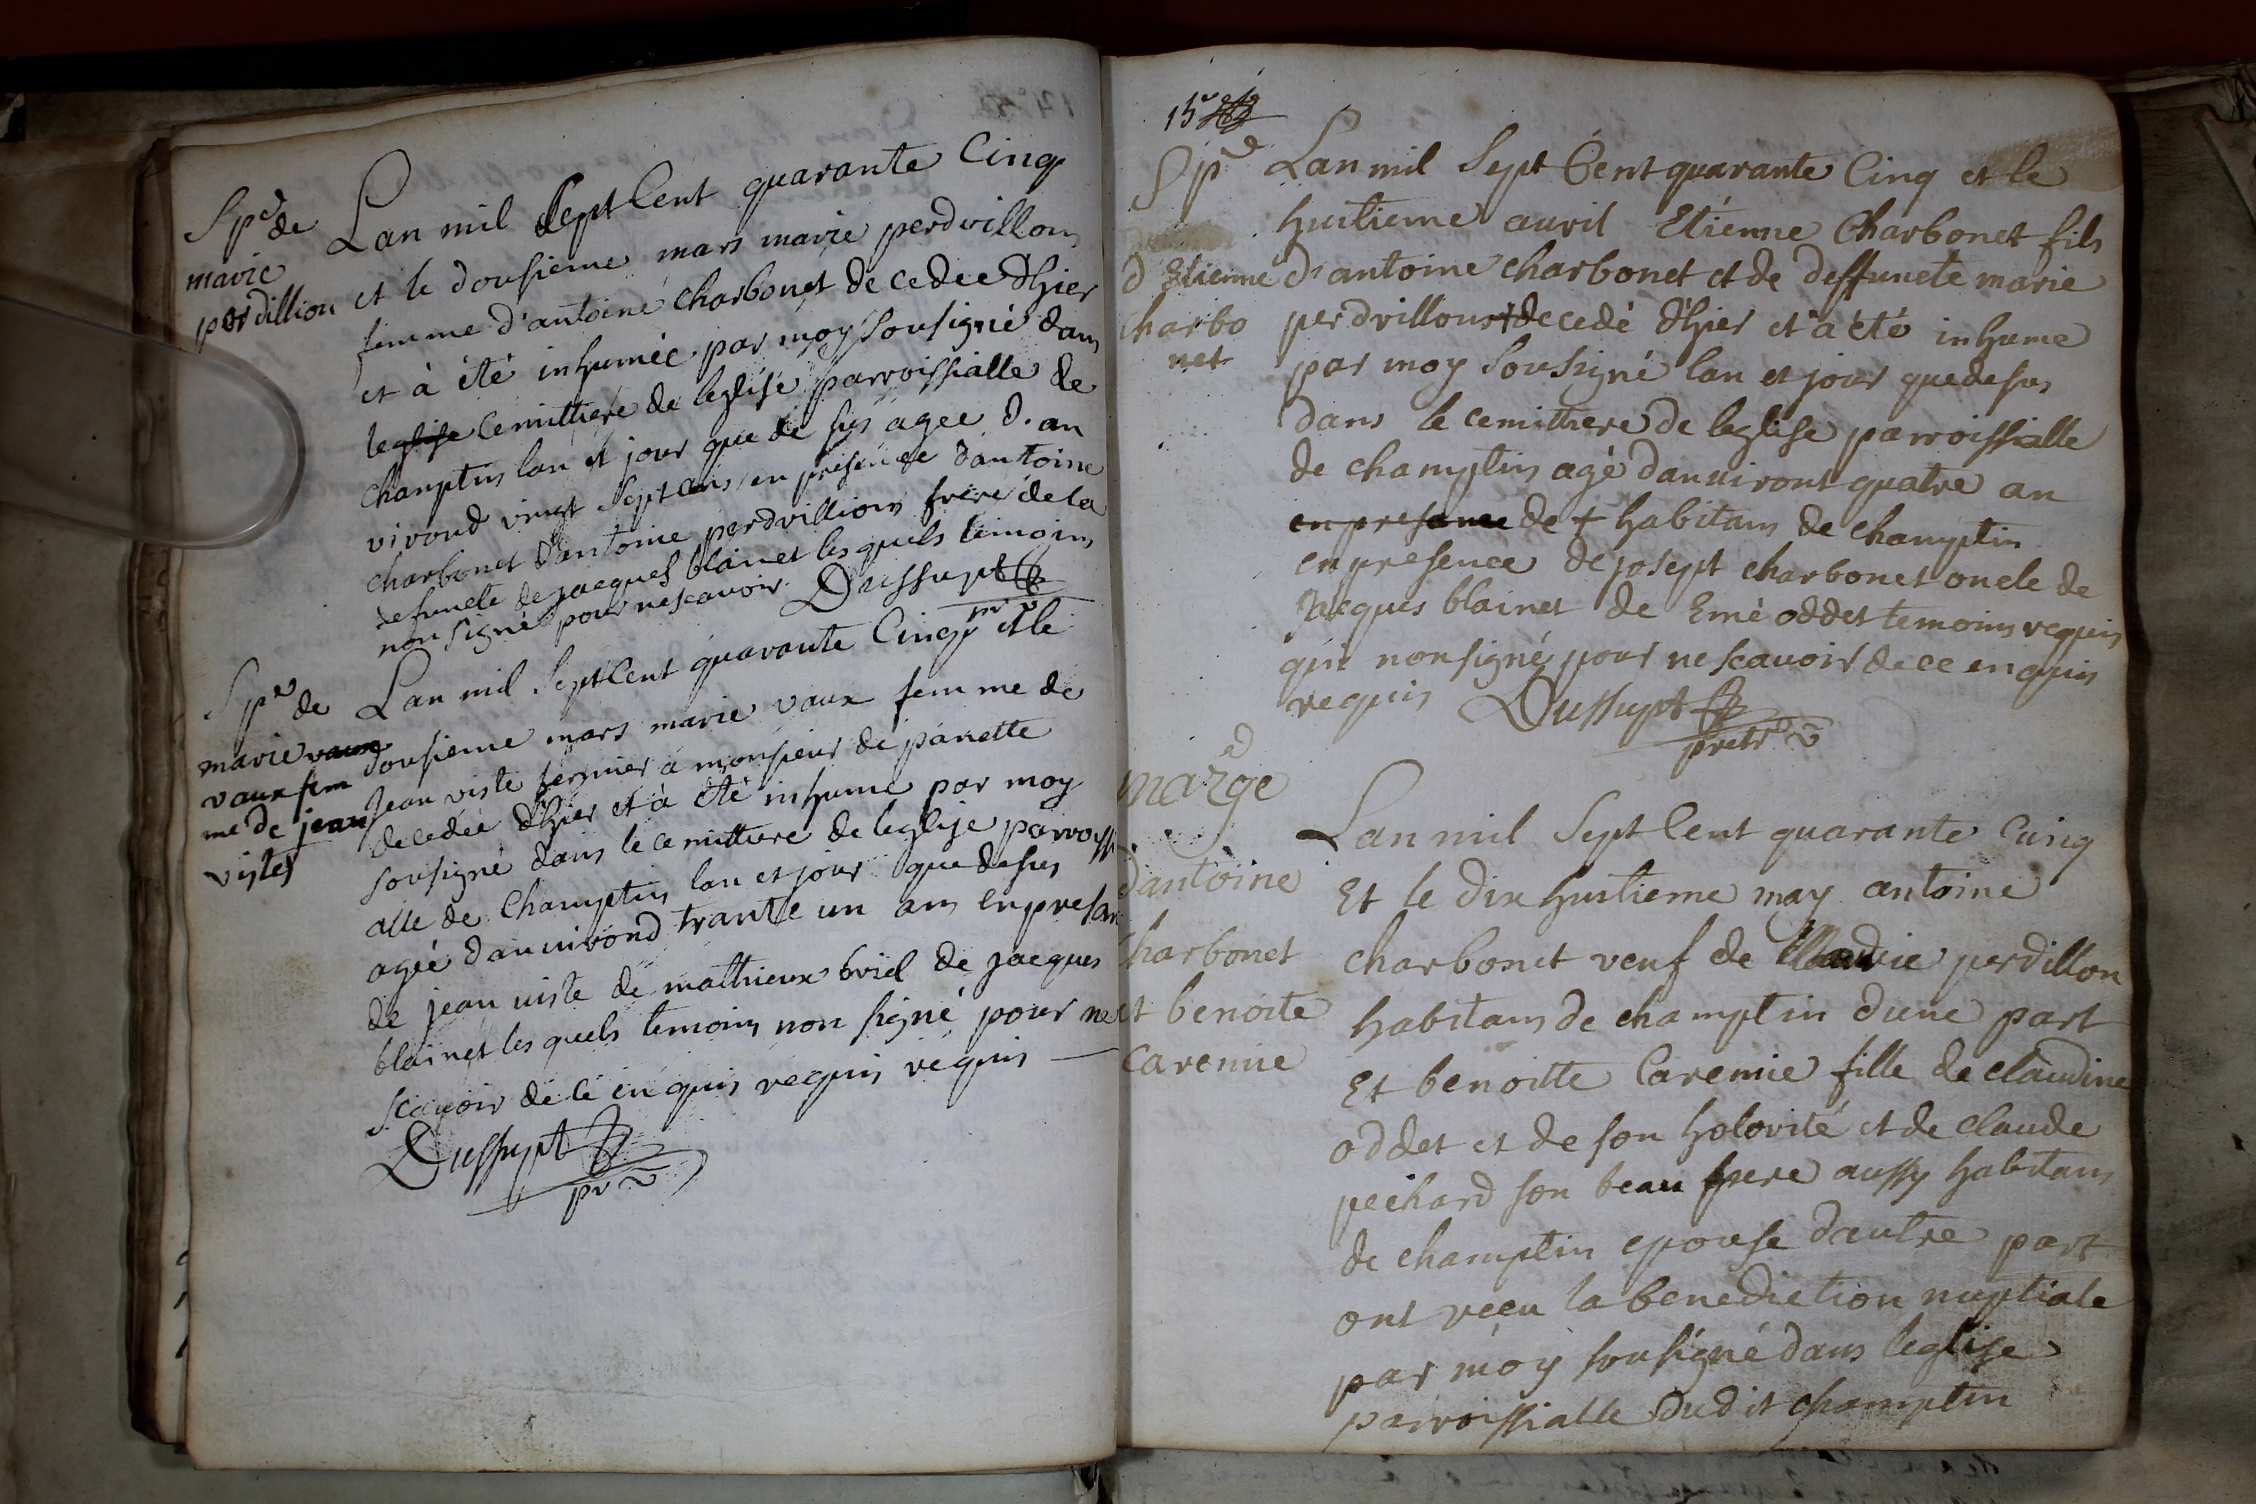 Sp^e de
marie
perdillion
Lan mil sept Cent quarante Cinq
et le dousieme mars marie perdrillon
femme d'antoine charbonet decedee dhier
et à été inhumée par moy sousigné dans
leglise cemittiere de leglise parroissialle de
champtin lan et jour que de sus agee d. an
virond vingt sept ans en presence dantoine
charbonet dantoine perdrillion frere de la
defuncte de jacques blainet les quels temoins
non signé pour ne scavoir Dussupt
pr
Sp^e de
marie vaux
vaux fem
me de jean
vistes
Lan mil sept Cent quarante Cinq et le
dousieme mars marie vaux femme de
Jean viste fermier a monsieur de panette
decedée dhier et à été inhumé par moy
sousigné dans le cemittiere de leglise parroissi
alle de Champtin lan et jour que desus
agée danvirond trante un ans en presan
de jean viste de mathieux briel de jacques
blainet les quels temoins non signé pour ne
scavoir de ce enquis requis requis
Dussupt
pr
15^e
Sp^e
d Etienne
charbo
net
Lan mil Sept Cent quarante Cinq et le
huitieme avril Etienne Charbonet fils
d'antoine charbonet et de deffuncte marie
perdrillons decedé dhier et à été inhume
par moy sousigné lan et jour que desus
dans le cemittiere de leglise parroissialle
de champtin agé danviront quatre an
en presance de + habitans de champtin
en presence de josept charbonet oncle de
Jacques blainet de Emé oddet temoins requis
qui non signé pour ne scavoir de ce enquis
requis Dussupt
pretr
mar^ge
d'antoine
Charbonet
et benoite
Caremie
Lan mil Sept Cent quarante Cinq
Et le dix huitieme may antoine
charbonet veuf de Marie perdillon
habitans de champtin dune part
Et benoitte Caremie fille de claudine
oddet et de son hotorité et de claude
pechard son beau frere aussy habitans
de champtin epouse dautre part
ont recu la benediction nuptiale
par moy sousigné dans leglise
parroissialle dudit champtin